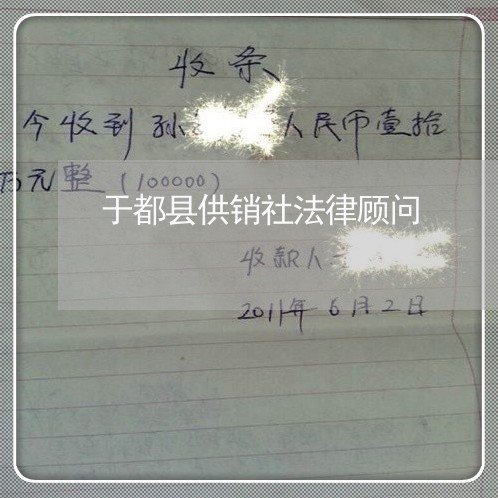 收条
今收到孙 人民币壹拾
万元整（100000）
于都县供销社法律顾问
收款人
2011年6月2日